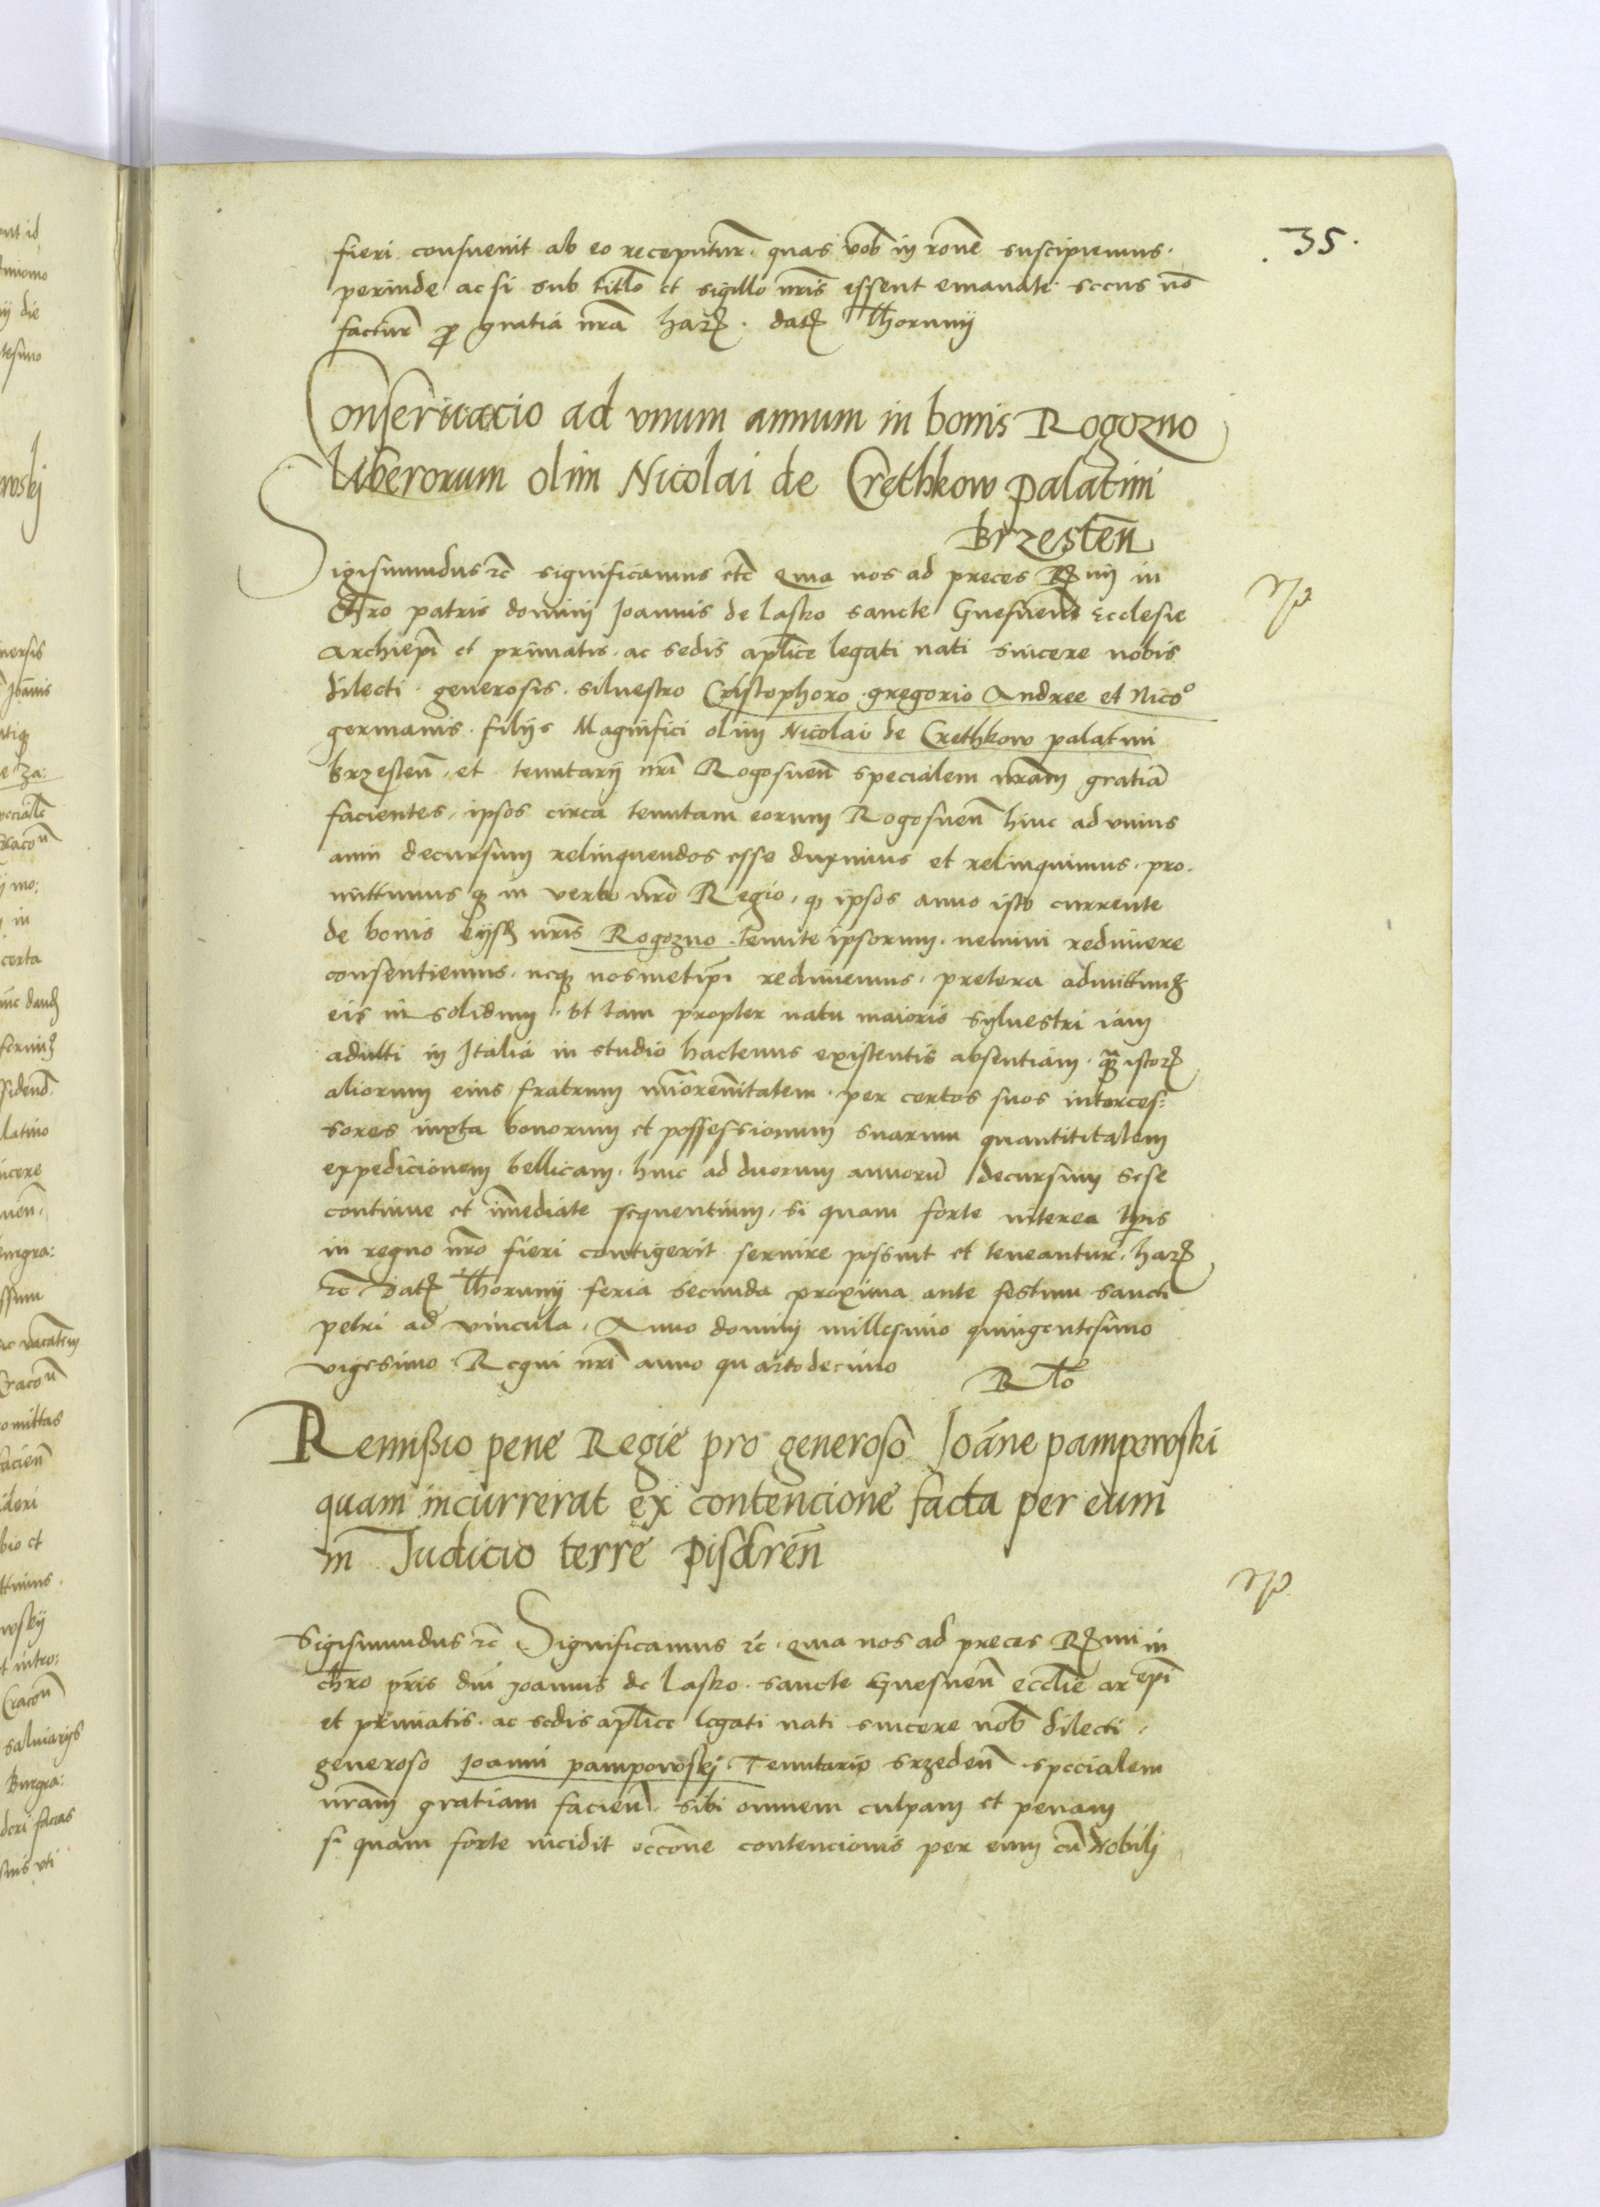 35.
fieri consuevit ab eo recepturū. quas vob in rone suscipiemus.
perinde ac si sub titlo et sigillo nris essent emanate. secus nō
facturū p gratia nra harꝫ. datꝫ Thorunij
Conservacio ad vnum annum in bonis Rogozno
liberorum olim Nicolai de Crethkow palatini
Brzestēn
Sigismundus rc significamus etc Quia nos ad preces Rꝫmi in
Chro patris domini Joannis de Lasko sancte Gnesnenṣ Ecclesie
Archiepi et primatis. ac sedis aplice legati nati sincere nobis
dilecti. generosis. silvestro Cristophoro. gregorio Andree et Nico°
germanis. filijs Magnifici olim Nicolai de Crethkow palatini
Brzesteñ. et tenutarij nri Rogosneñ specialem nram gratiā
facientes, ipsos circa tenutam eorum Rogosneñ hinc ad vnius
anni decursum relinquendos esse duximus et relinquimus. pro.
mittimus qꝫ in verbo nro Regio, qꝫ ipsos anno isto currente
de bonis eijsꝫ nris Rogozno. tenute ipsorum. nemini redimere
consentiemus. neqꝫ nosmetipi redimemus, pretera admittimꝫ
eis in solidum. vt tam propter natu maioris sylvestri iam
adulti in Italia in studio hactenus existentis absentiam. qꝫ istorꝫ
aliorum eius fratrum miorennitatem. per certos suos interces:
sores iuxta bonorum et possessionum suarum quantititatem
expedicionem bellicam. hinc ad duorum annorū decursum sese
continue et imediate sequentium, si quam forte interea tpis
in regno nro fieri contigerit servire possint et teneantur. harꝫ
rc Datꝫ Thorunij feria secunda proxima ante festum sancti
petri ad vincula, Anno domini millesimo quingentesimo
vigesimo Regni nri anno quartodecimo
R Lo
Remissio pene Regie pro generoso Joāne pampowski
quam incurrerat ex contencione facta per eum
in Judicio terre pisdreñ
Sigismundus rc Significamus rc. Quia nos ad preces Rꝫmi in
chro pris dni Joannis de Lasko. sancte Gnesneñ ecclie arepi
et primatis. ac sedis aplice legati nati sincere nob dilecti,
generoso Joanni pampowskj. Tenutario srzedeñ. specialem
nram gratiam facieñ. sibi omnem culpam et penam
si quam forte incidit occone contencionis per eum cū Nobilj